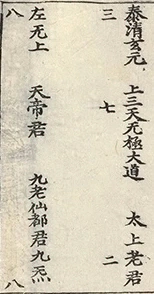 泰清玄元　上三天无極大道　太上老君
三　七　二
左无上　天帝君　九老仙都君九炁
八　八